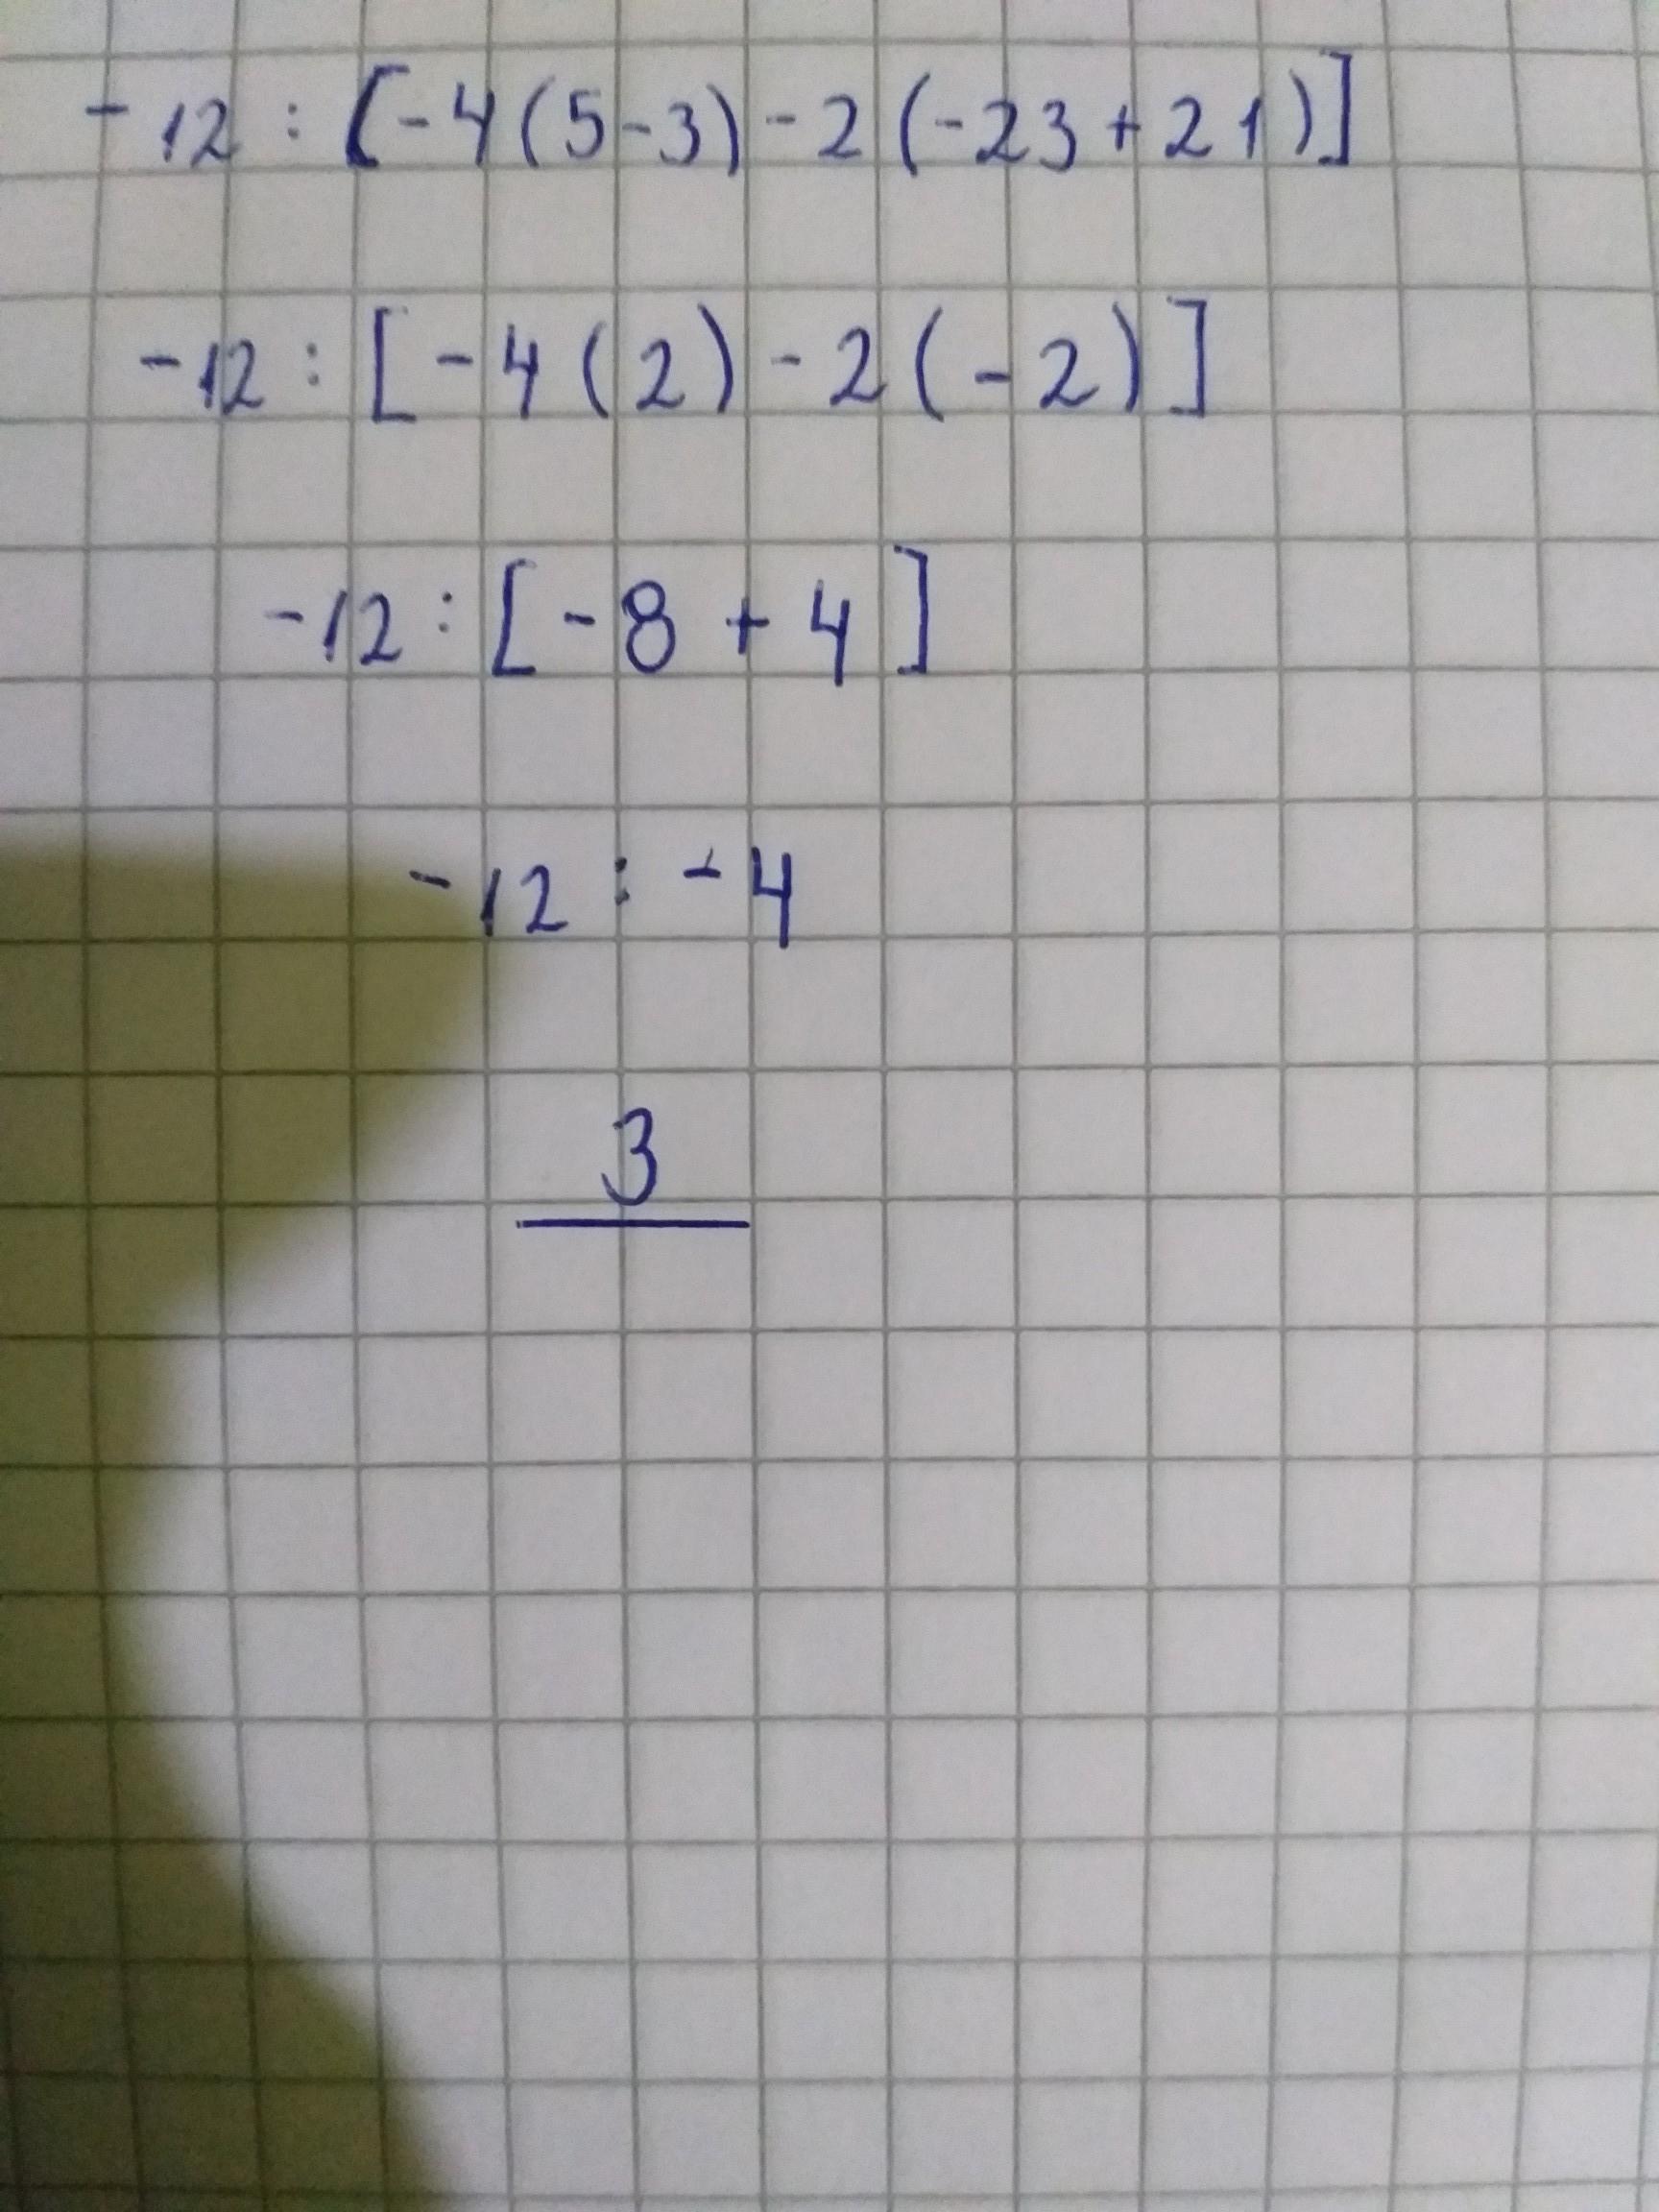 -12 : [-4(5-3)-2(-23+21)]
-12 : [-4(2)-2(-2)]
-12 : [-8+4]
-12 : -4
3